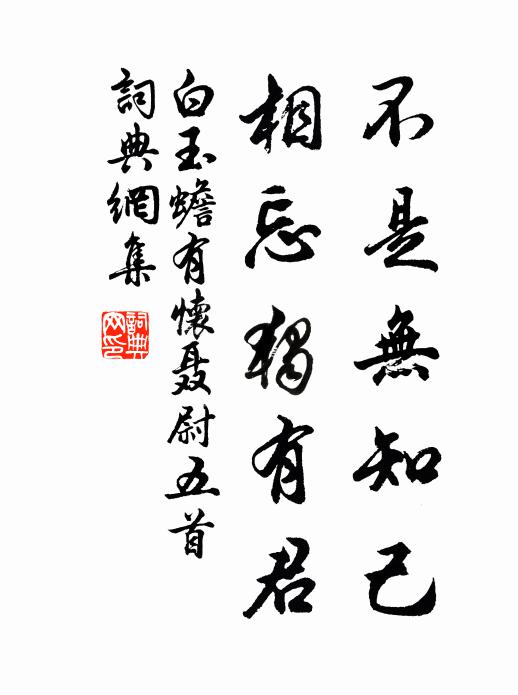 不是無知己
相忘獨有君
白玉蟾有懷聶尉五首
詞典網集
詞典網印